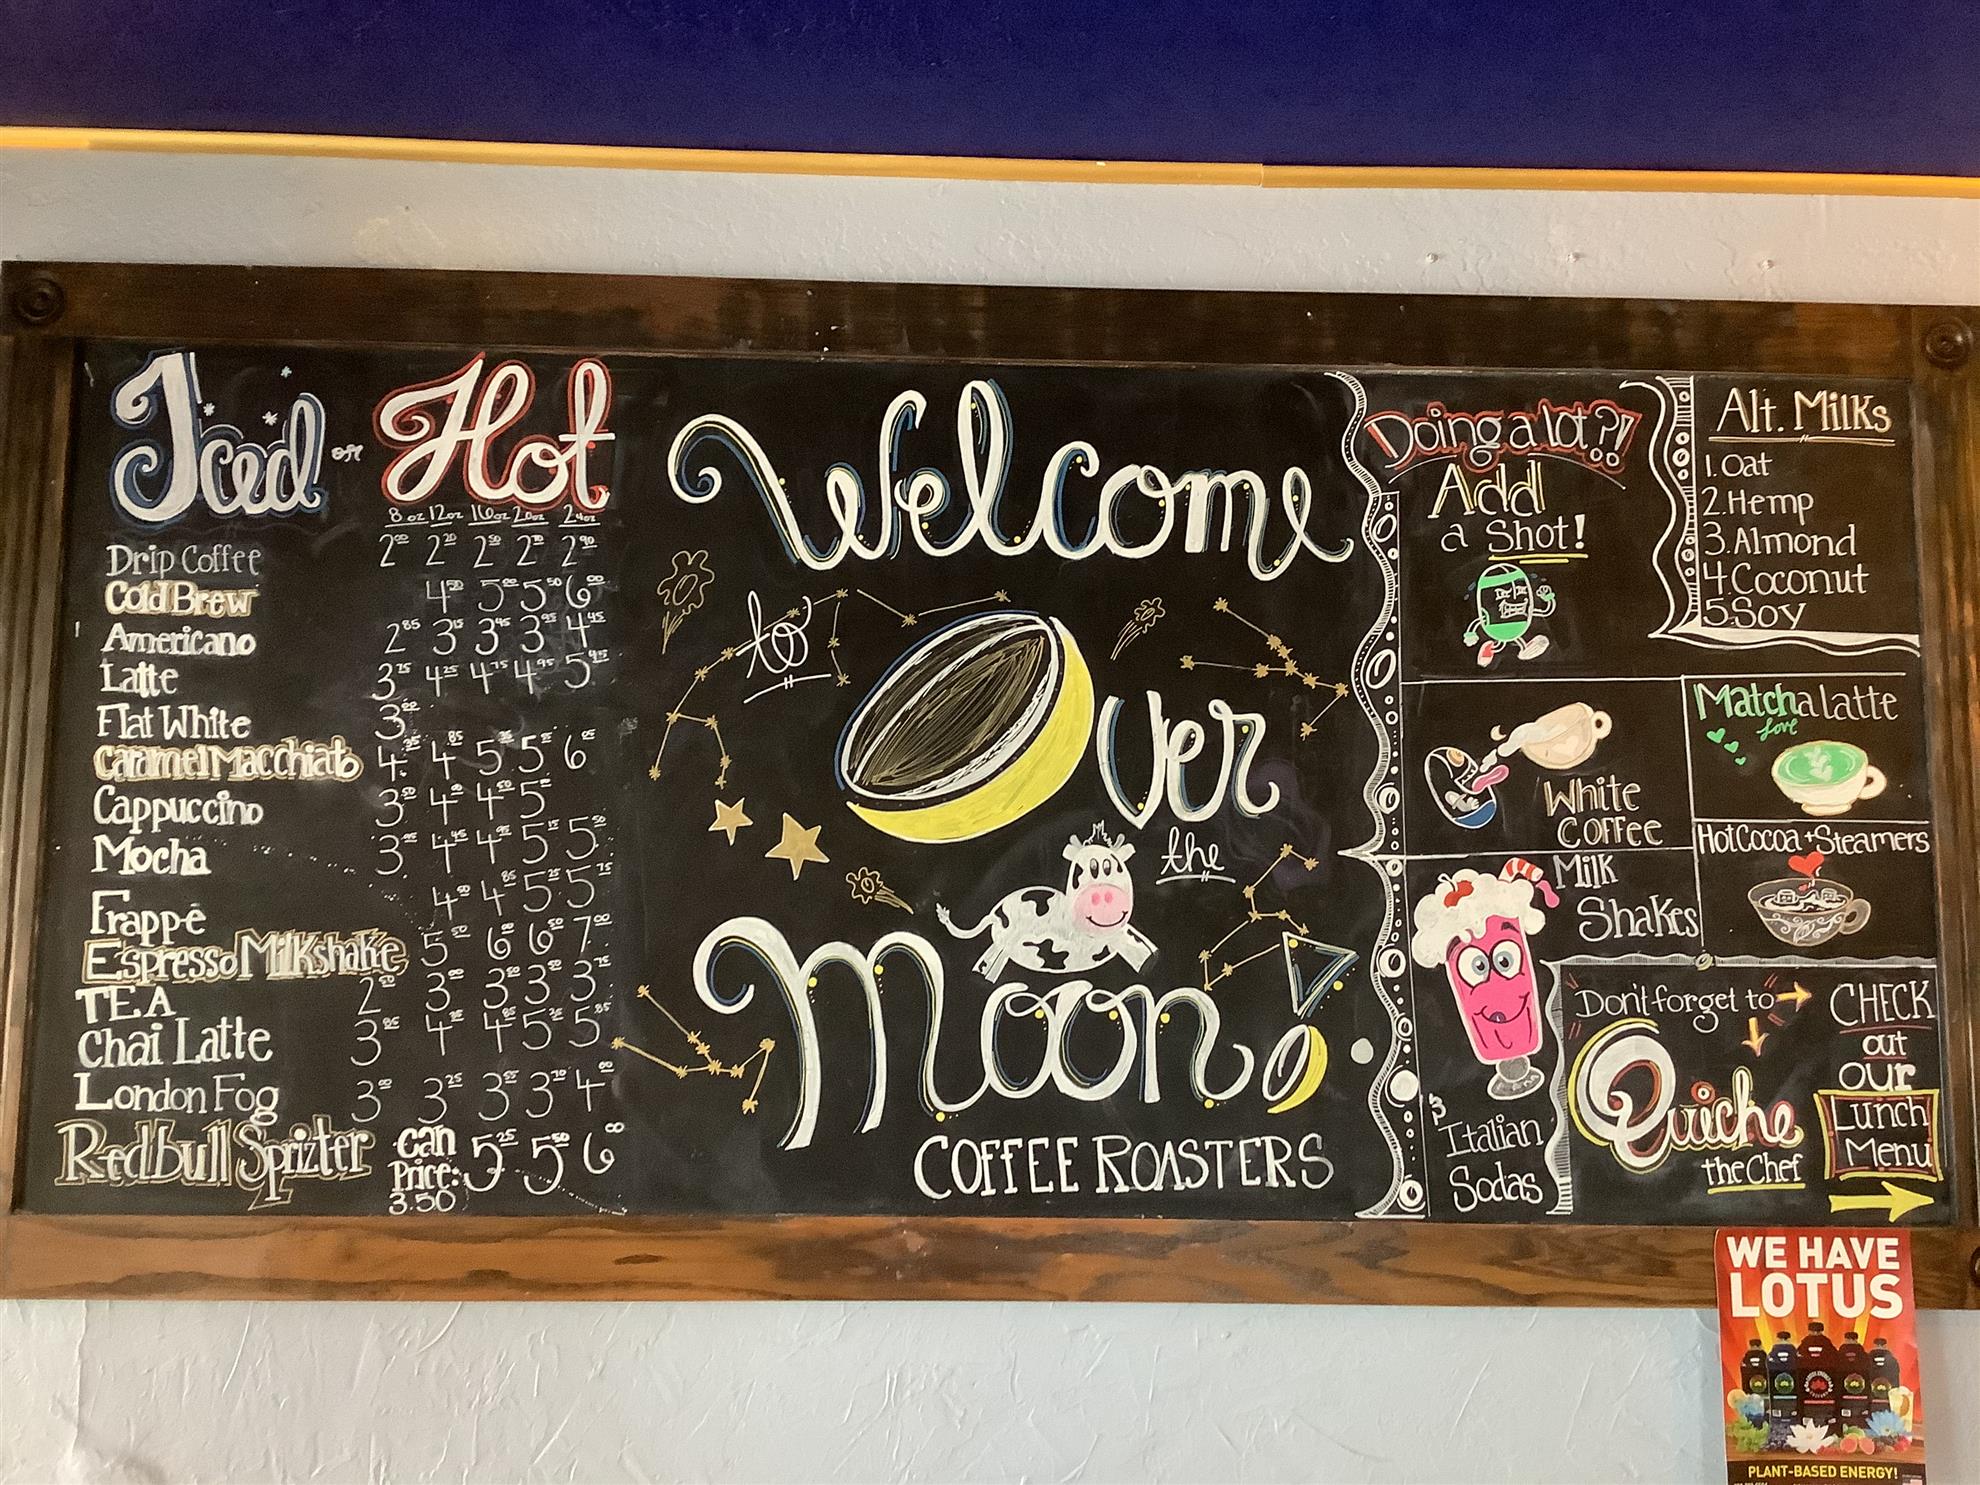 Iced or Hot
8oz 12oz 16oz 20oz 24oz
Drip Coffee 2.00 2.20 2.50 2.70 2.90
Cold Brew 4.50 5.00 5.50 6.00
Americano 2.85 3.15 3.45 3.95 4.45
Latte 3.75 4.25 4.75 4.95 5.45
Flat White 3.00
Caramel Macchiato 4. 4.85 5. 5. 6.
Cappuccino 3.50 4.00 4.50 5.
Mocha 3.95 4.45 4.95 5.15 5.50
Frappé 4.00 4.85 5.25 5.75
Espresso Milkshake 5.50 6.00 6.50 7.00
TEA 2.50 3.00 3.50 3.50 3.75
Chai Latte 3.85 4. 4.85 5.25 5.85
London Fog 3.00 3.25 3.55 3.70 4.00
Redbull Sprizter can Price: 3.50 5.25 5.50 6.00
Welcome
to
Over
the
Moon!
COFFEE ROASTERS
Doing a lot?!
Add
a Shot!
Alt. Milks
1. Oat
2. Hemp
3. Almond
4. Coconut
5. Soy
White
Coffee
Matcha latte
love
Hot Cocoa + Steamers
Milk
Shakes
&
Italian
Sodas
Don't forget to
Quiche
the Chef
CHECK
out
our
Lunch
Menu
WE HAVE
LOTUS
PLANT-BASED ENERGY!